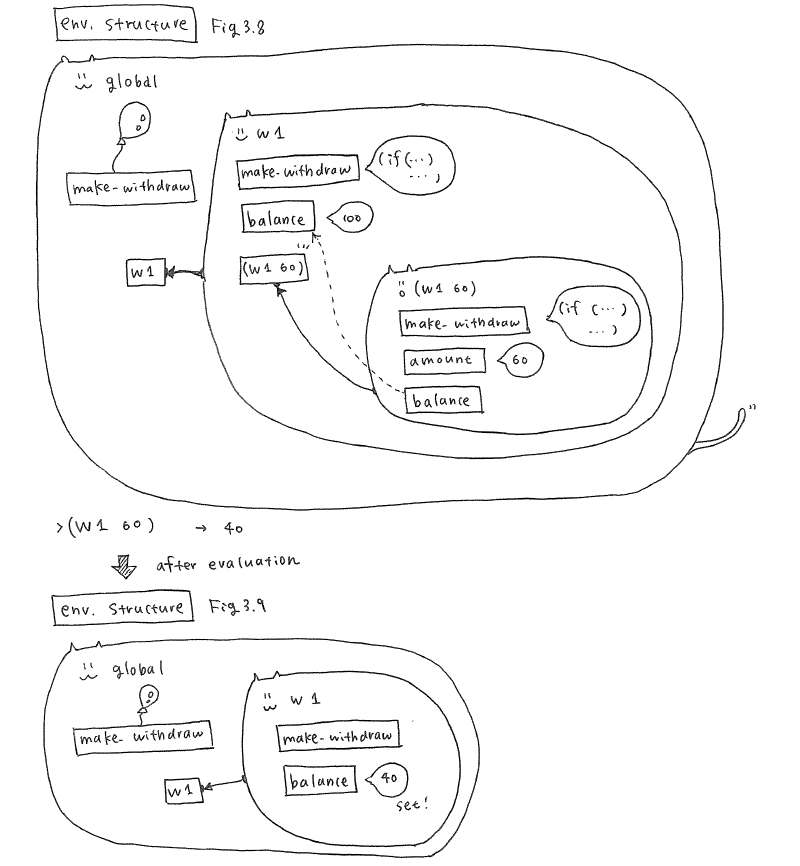 env. structure Fig 3.8
global
make-withdraw
w1
w1
make-withdraw (if (...)
...,
balance 100
(w1 60)
(w1 60)
make-withdraw (if (...)
...)
amount 60
balance
>(W1 60) → 40
after evaluation
env. structure Fig 3.9
global
make-withdraw
w1
w1
make-withdraw
balance 40
set!